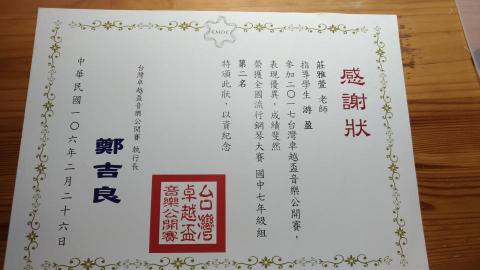 EMOC
感謝狀
莊雅萱 老師
指導學生 游 盈
參加二〇一七台灣卓越盃音樂公開賽，
表現優異，成績斐然
榮獲全國流行鋼琴大賽 國中七年級組
第二名
特頒此狀，以資紀念
台灣卓越盃音樂公開賽 執行長
鄭吉良
台灣
卓越盃
音樂公開賽
中華民國一〇六年二月二十六日